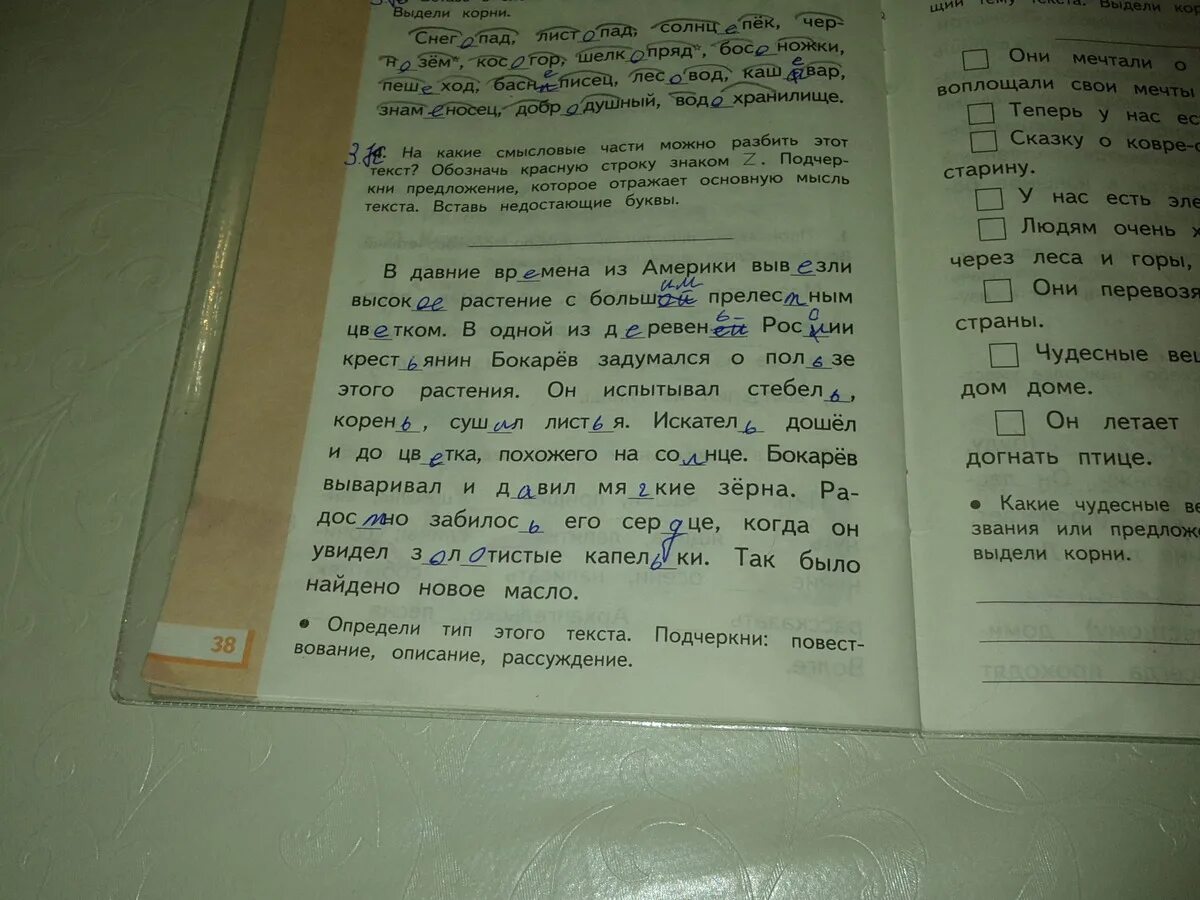 Выдели корни.
Снег о пад, лист о пад, солнц е пёк, чер-
н о зём*, кос о гор, шелк о пряд*, бос о ножки,
пеш е ход, басн е писец, лес о вод, каш е вар,
знам е носец, добр о душный, вод о хранилище.
На какие смысловые части можно разбить этот
текст? Обозначь красную строку знаком Z. Подчер-
кни предложение, которое отражает основную мысль
текста. Вставь недостающие буквы.
В давние вр е мена из Америки выв е зли
высок ое растение с больш им прелес т ным
цв е тком. В одной из д е ревен ь Рос с ии
крест ь янин Бокарёв задумался о пол ь зе
этого растения. Он испытывал стебел ь ,
корен ь , суш и л лист ь я. Искател ь дошёл
и до цв е тка, похожего на со л нце. Бокарёв
вываривал и д а вил мя г кие зёрна. Ра-
дос т но забилос ь его сер д це, когда он
увидел з о л о тистые капел ь ки. Так было
найдено новое масло.
• Определи тип этого текста. Подчеркни: повест-
вование, описание, рассуждение.
38
щий тему текста. Выдели кор
Они мечтали о
воплощали свои мечты
Теперь у нас ес
Сказку о ковре-с
старину.
У нас есть эле
Людям очень х
через леса и горы,
Они перевозя
страны.
Чудесные вещ
дом доме.
Он летает
догнать птице.
• Какие чудесные ве
звания или предлож
выдели корни.